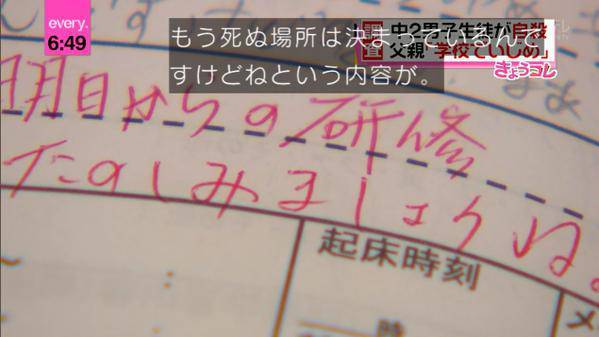 every.
6:49
調査
中2男子生徒が自殺
父親"学校でいじめ"
きょうコレ
もう死ぬ場所は決まっているんで
すけどねという内容が。
明日からの研修
たのしみましょうね。
起床時刻
時